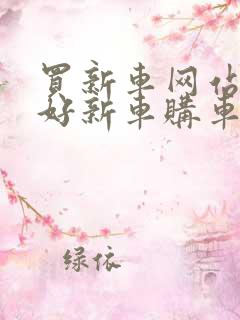 買新車网佔
好新車購車
绿依